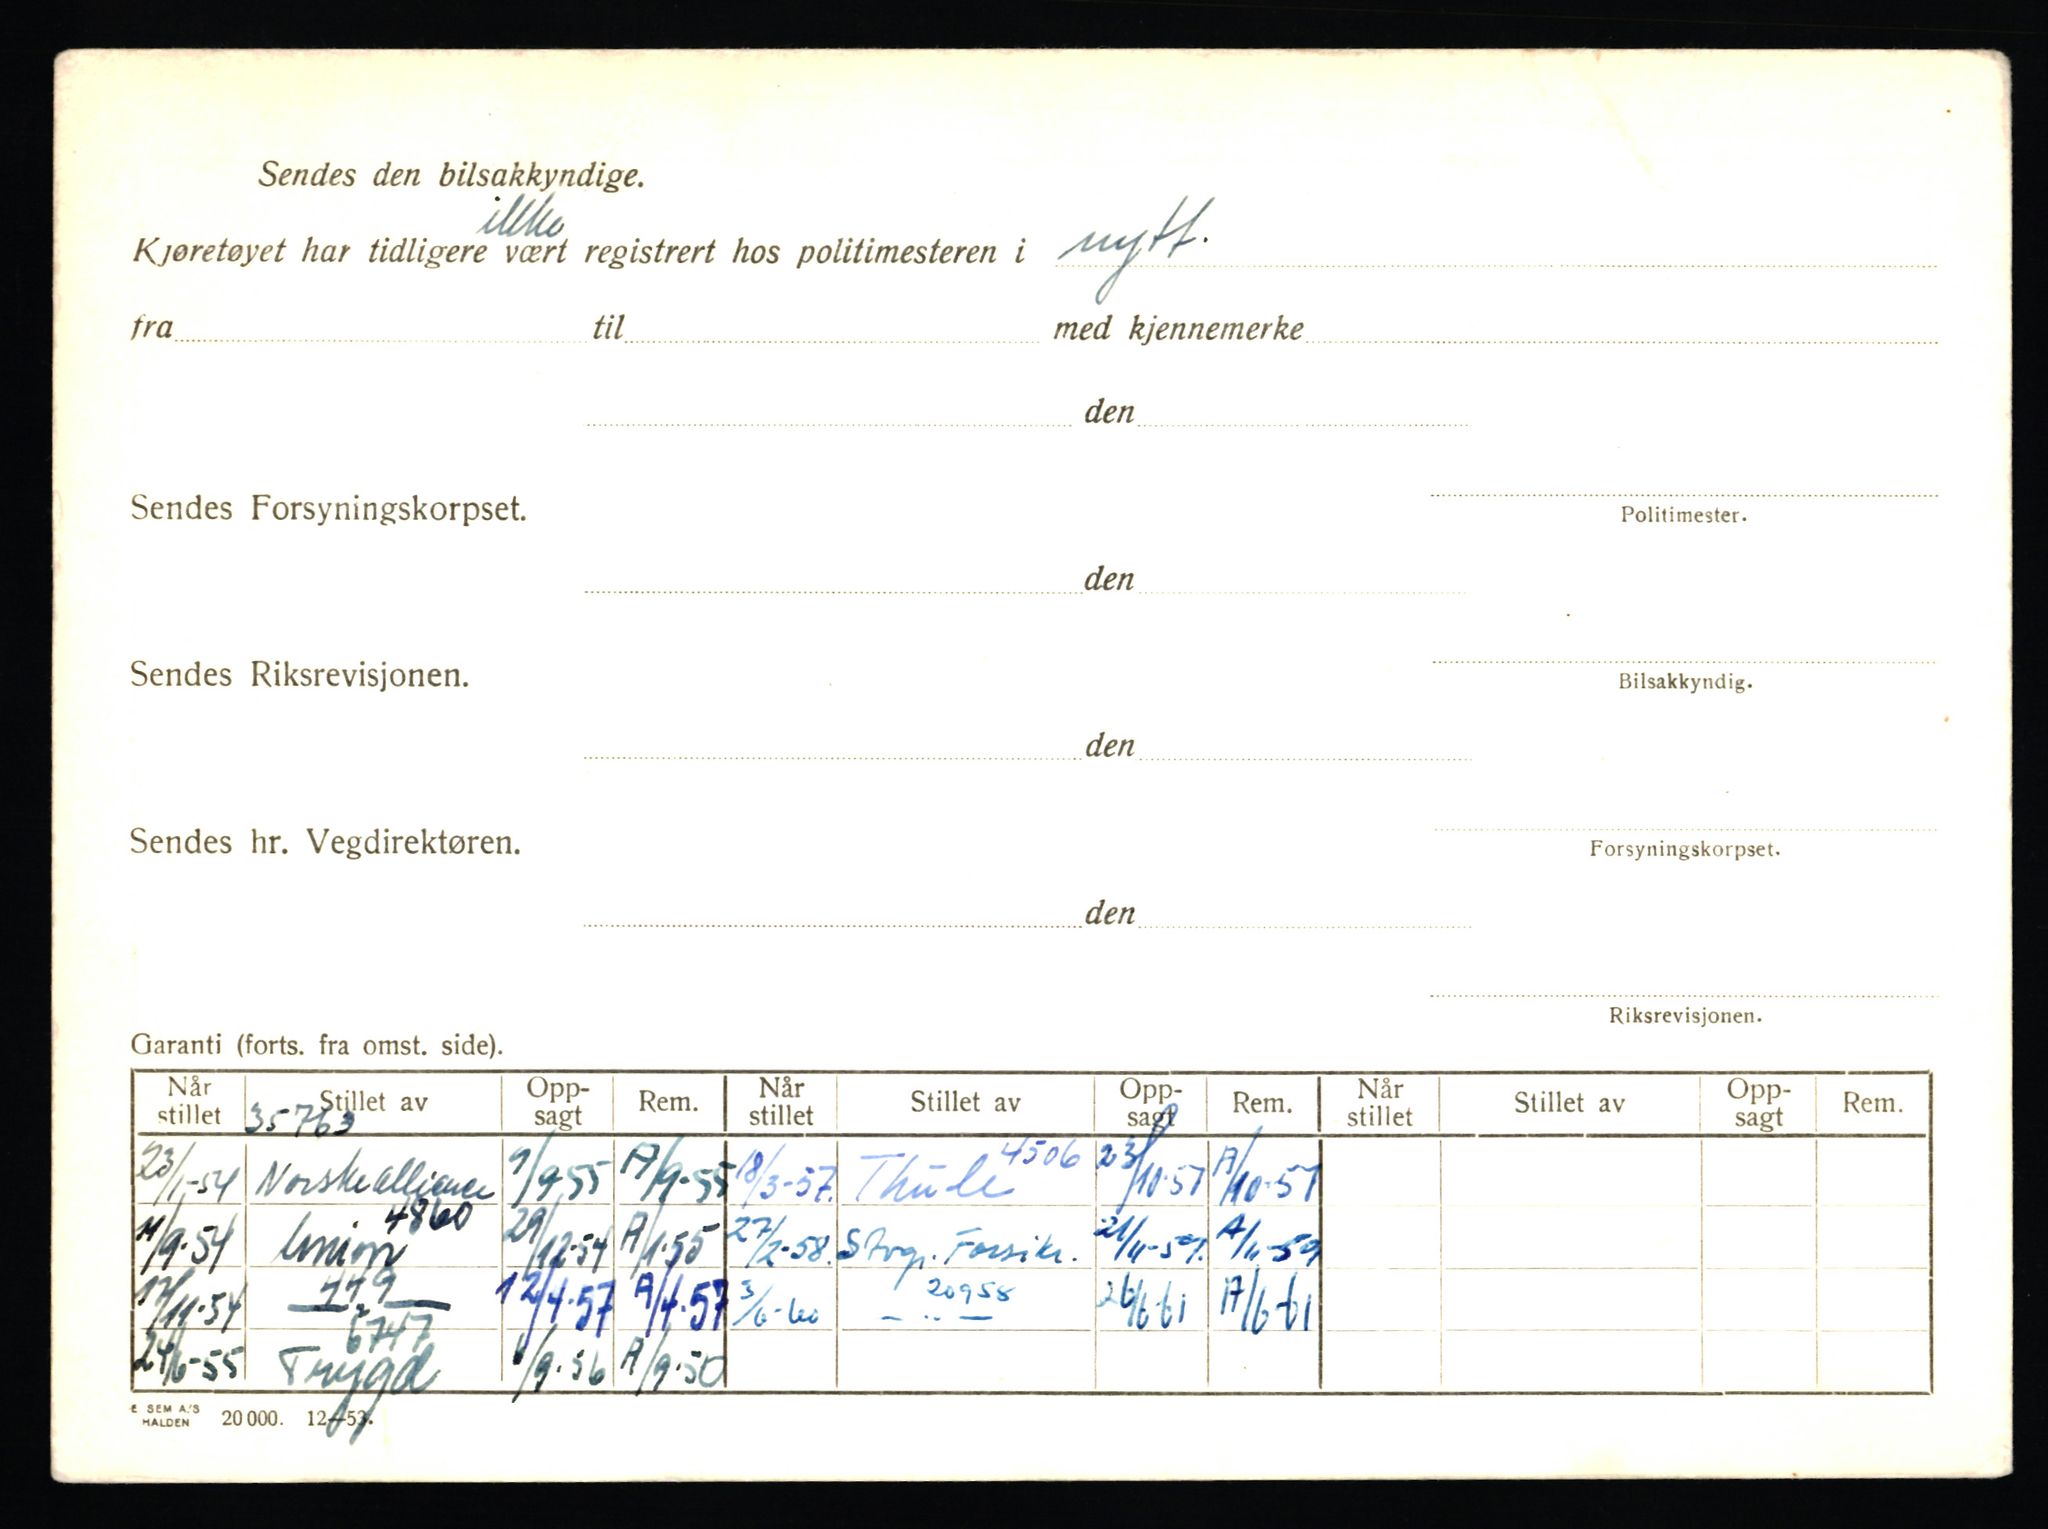 Sendes den bilsakkyndige.
ikke
Kjøretøyet har tidligere vært registrert hos politimesteren i nytt.
fra til med kjennemerke
den
Sendes Forsyningskorpset.
Politimester.
den
Sendes Riksrevisjonen.
Bilsakkyndig.
den
Sendes hr. Vegdirektøren.
Forsyningskorpset.
den
Riksrevisjonen.
Garanti (forts. fra omst. side).
Når stillet Stillet av Opp-sagt Rem. Når stillet Stillet av Opp-sagt Rem. Når stillet Stillet av Opp-sagt Rem.
35763
23/1-54 Norske alliance 9/9-55 A/9-55 18/3-57. Thule 4506 23/10-57 A/10-57
4860
11/9-54 Union 29/12-54 A/1-55 27/2-58. Stvgr. Forsikr. 21/11-59. A/11-59
17/11-54 — 779 — 12/4-57 A/4-57 3/6-60 — 20958 — 26/6-61 A/6-61
6747
24/6-55 Trygd /9-56 A/9-50
E SEM A/S
HALDEN 20 000. 12—53.